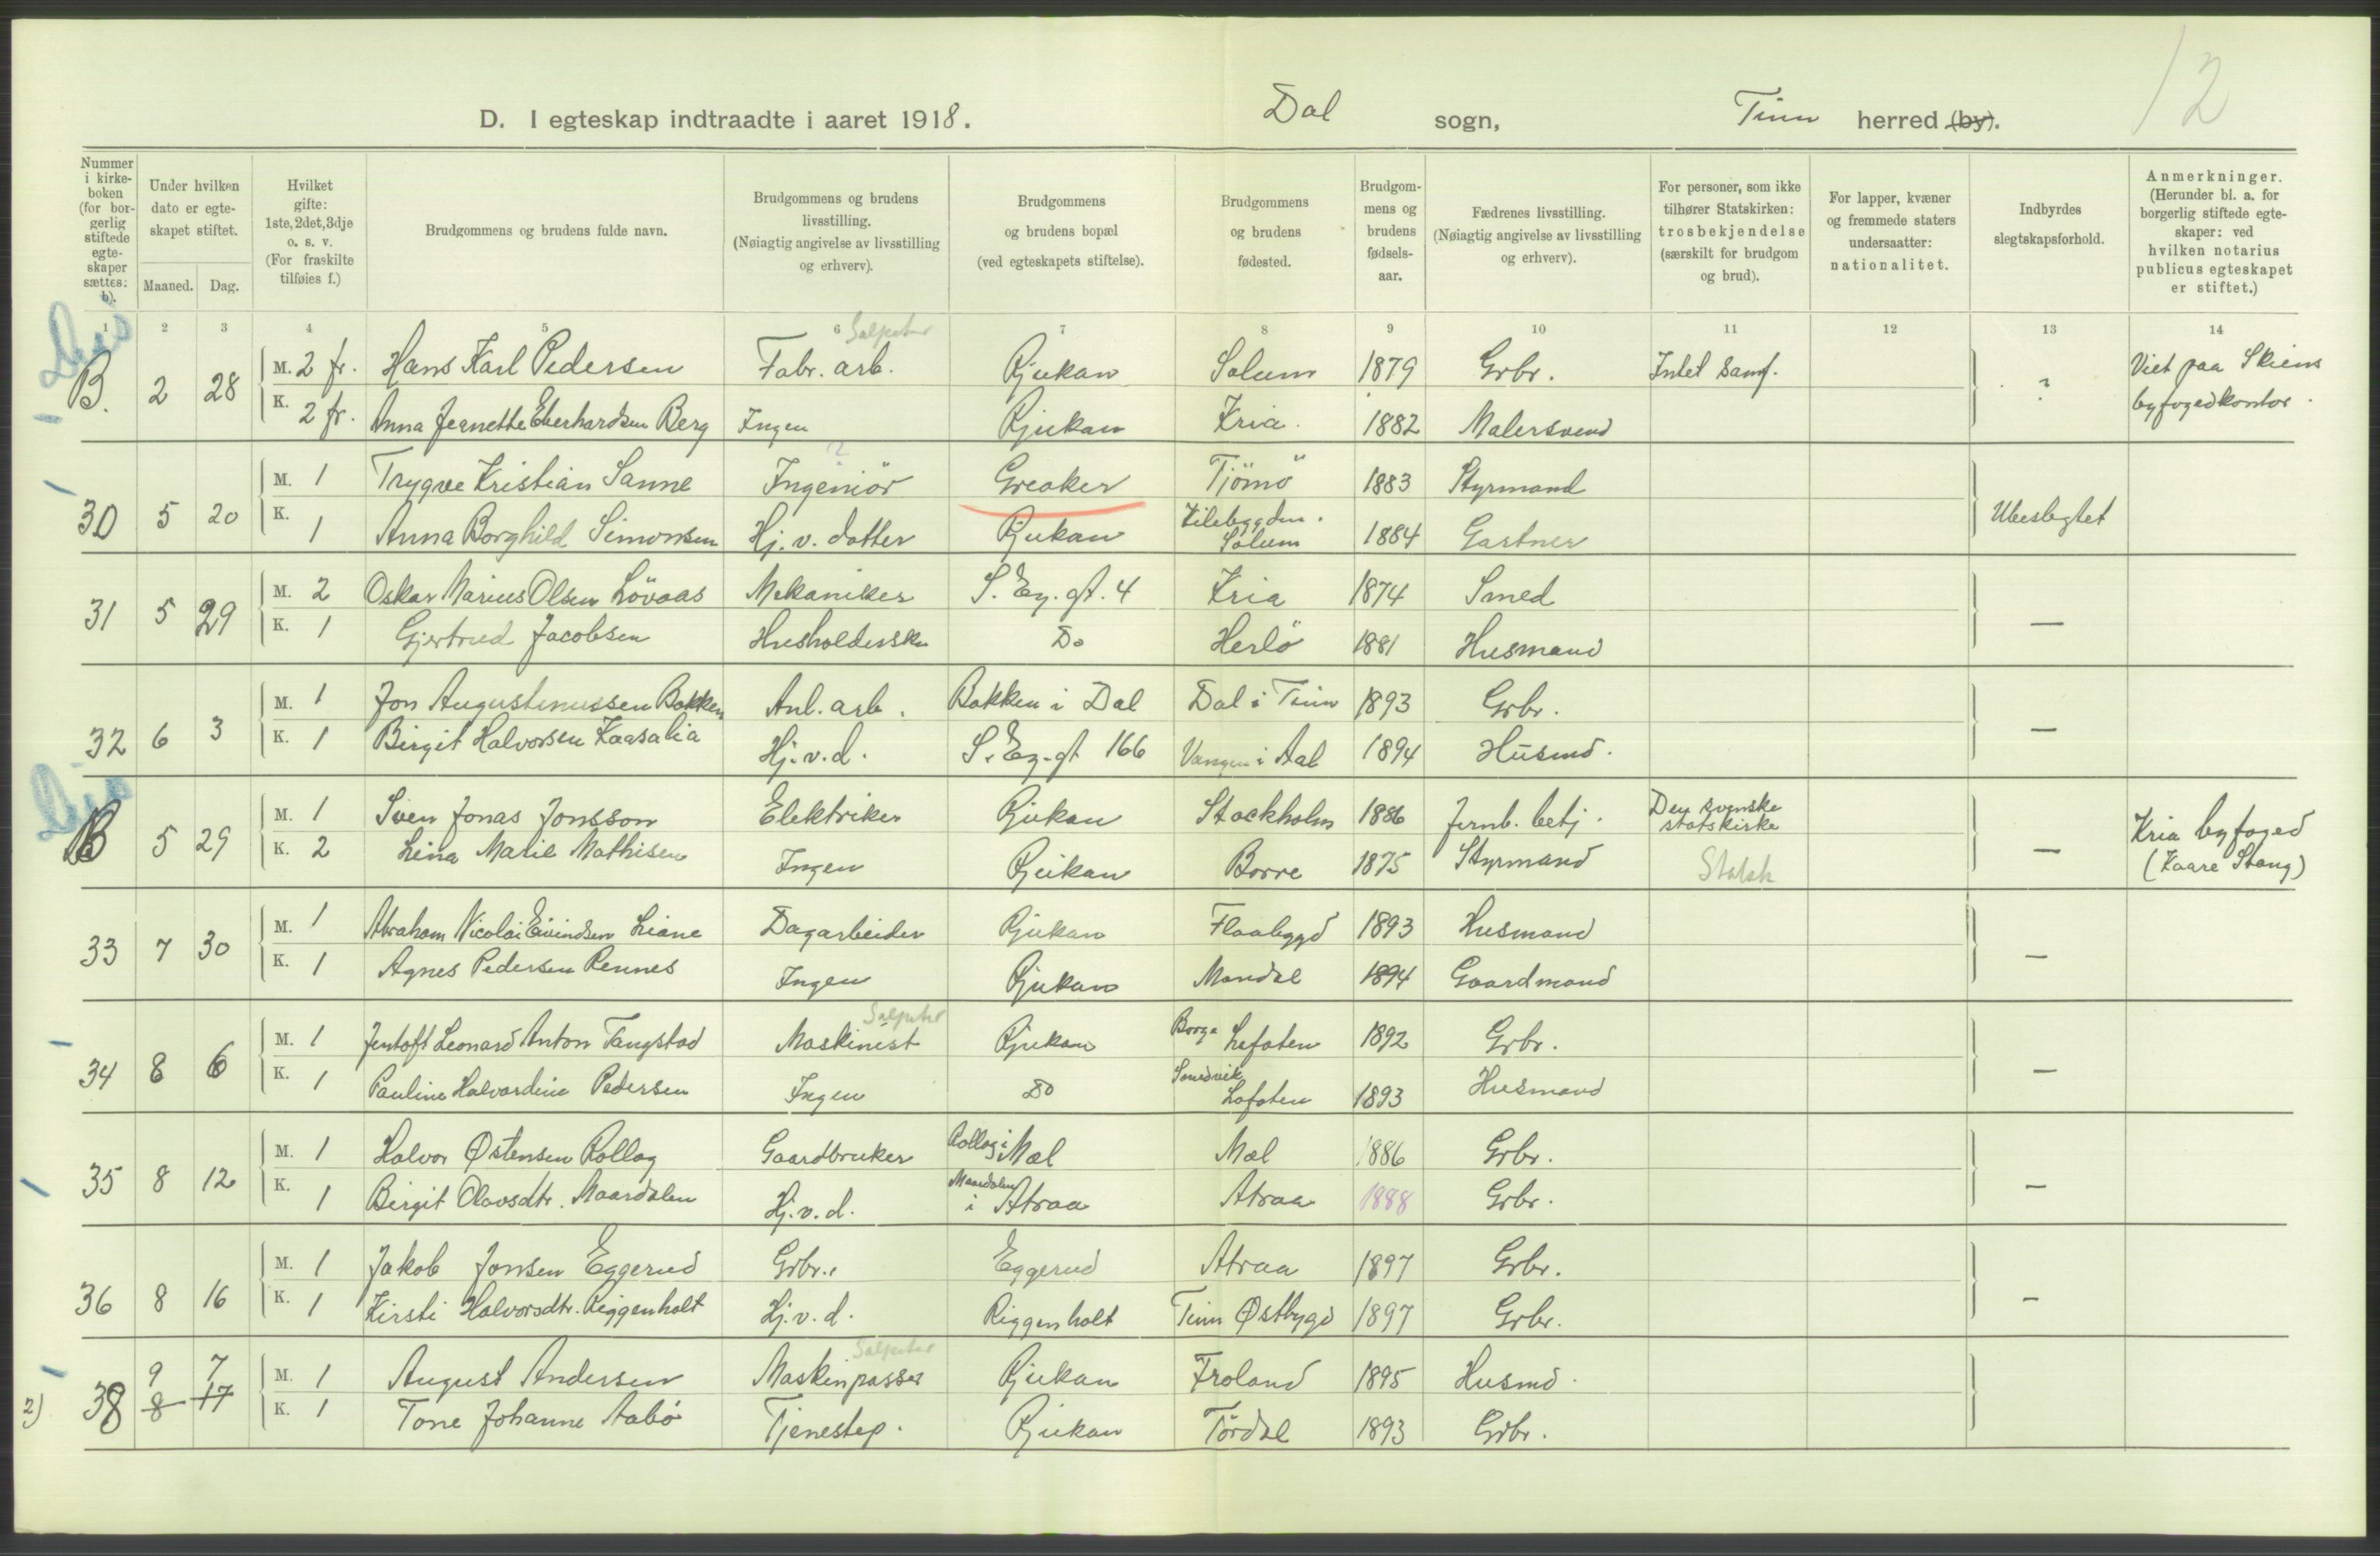 12
D. I egteskap indtraadte i aaret 1918. Dal sogn, Tinn herred (by).
Nummer i kirke-boken (for bor-gerlig stiftede egte-skaper sættes: b).
Under hvilken dato er egte-skapet stiftet.
Maaned. Dag.
Hvilket gifte: 1ste, 2det, 3dje o. s. v. (For fraskilte tilføies f.)
Brudgommens og brudens fulde navn.
Brudgommens og brudens livsstilling. (Nøiagtig angivelse av livsstilling og erhverv).
Brudgommens og brudens bopæl (ved egteskapets stiftelse).
Brudgommens og brudens fødested.
Brudgom-mens og brudens fødsels-aar.
Fædrenes livsstilling. (Nøiagtig angivelse av livsstilling og erhverv).
For personer, som ikke tilhører Statskirken: trosbekjendelse (særskilt for brudgom og brud).
For lapper, kvæner og fremmede staters undersaatter: nationalitet.
Indbyrdes slegtskapsforhold.
Anmerkninger. (Herunder bl. a. for borgerlig stiftede egte-skaper: ved hvilken notarius publicus egteskapet er stiftet.)
1 2 3 4 5 6 7 8 9 10 11 12 13 14
Salpeter
B. 2 28 M. 2 fr. Hans Karl Pedersen Fabr. arb. Rjukan Solum 1879 Grbr. Intet samf. ? Viet paa Skiens
K. 2 fr. Anna Jeanette Eberhardsen Berg Ingen Rjukan Kria. 1882 Malersvend byfogedkontor.
30 5 20 M. 1 Trygve Kristian Sanne Ingeniör Greaker Tjömö 1883 Styrmand Ubeslegtet
K. 1 Anna Borghild Simonsen Hj. v. datter Rjukan Kilebygden. Solum 1884 Gartner
31 5 29 M. 2 Oskar Marius Olsen Lövaas Mekaniker S. Ey. gt. 4 Kria 1874 Smed —
K. 1 Gjertrud Jacobsen Husholderske Do Herlö 1881 Husmand
32 6 3 M. 1 Jon Augustinussen Bakken Anl. arb. Bakken i Dal Dal i Tinn 1893 Grbr. —
K. 1 Birgit Halvorsen Kaasalia Hj. v. d. S. Ey. gt 166 Vangen i Aal 1894 Husmd.
B 5 29 M. 1 Sven Jonas Jonsson Elektriker Rjukan Stockholm 1886 Jernb. betj. Den svenske statskirke — Kria byfoged
K. 2 Lina Marie Mathisen Ingen Rjukan Borre 1875 Styrmand Statsk (Kaare Stang)
33 7 30 M. 1 Abraham Nicolai Eivindsen Liane Dagarbeider Rjukan Flaabygd 1893 Husmand —
K. 1 Agnes Pedersen Rennes Ingen Rjukan Mandal 1894 Gaardmand
Salpeter
34 8 6 M. 1 Jentoft Leonard Anton Tangstad Maskinist Rjukan Borge Lofoten 1892 Grbr. —
K. 1 Pauline Halvardine Pedersen Ingen Do Smedvik Lofoten 1893 Husmand
35 8 12 M. 1 Halvor Østensen Rollag Gaardbruker Rollag i Mæl Mæl 1886 Grbr. —
K. 1 Birgit Olavsdtr. Maardalen Hj. v. d. Maardalen i Atraa Atraa 1888 Grbr.
36 8 16 M. 1 Jakob Jonsen Eggerud Grbr. Eggerud Atraa 1897 Grbr. —
K. 1 Kirsti Halvorsdtr. Riggenholt Hj. v. d. Riggenholt Tinn Østbygd 1897 Grbr.
Salpeter
2) 38 9 8 7 17 M. 1 August Andersen Maskinpasser Rjukan Froland 1895 Husmd.
K. 1 Tone Johanne Aabö Tjenestep. Rjukan Tördal 1893 Grbr.